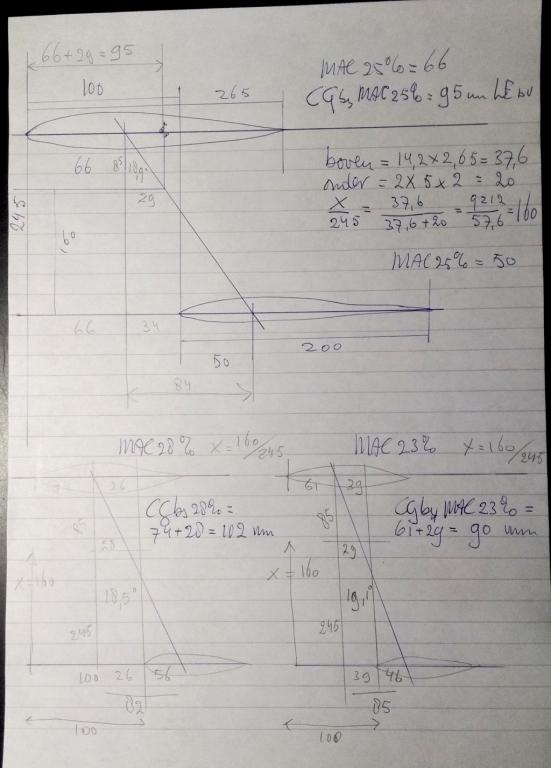 66+29 = 95
MAC 25% = 66
CG by MAC 25% = 95 mm LE bv
100
265
boven = 14,2 x 2,65 = 37,6
onder = 2 x 5 x 2 = 20
X/245 = 37,6/37,6+20 = 9212/57,6 = 160
66
85
29
245
160
MAC 25% = 50
66
34
50
200
84
MAC 28% X = 160/245
MAC 23% X = 160/245
74
26
61
39
CG by 28% =
74+28 = 102 mm
CG by MAC 23% =
61+29 = 90 mm
85
28
85
29
X = 160
18,5°
X = 160
19,1°
245
245
100
26
56
39
46
82
85
100
100